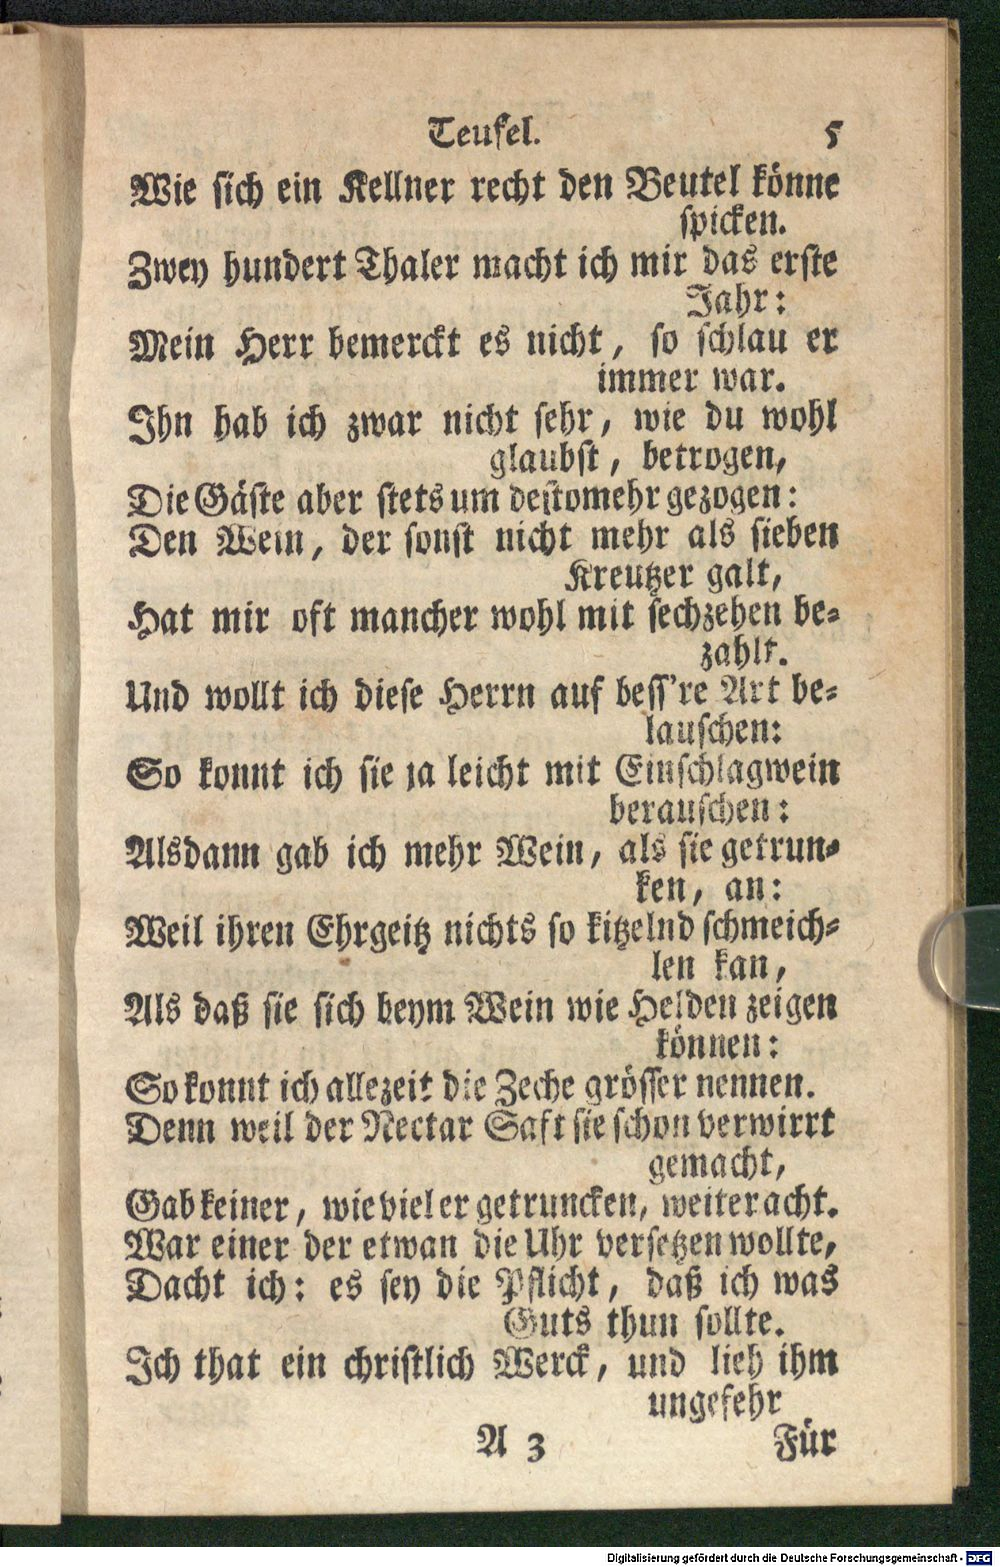 Teufel. 5
Wie sich ein Kellner recht den Beutel könne
spicken.
Zwey hundert Thaler macht ich mir das erste
Jahr:
Mein Herr bemerckt es nicht, so schlau er
immer war.
Ihn hab ich zwar nicht sehr, wie du wohl
glaubst, betrogen,
Die Gäste aber stets um destomehr gezogen:
Den Wein, der sonst nicht mehr als sieben
Kreutzer galt,
Hat mir oft mancher wohl mit sechzehen be-
zahlt.
Und wollt ich diese Herrn auf bess're Art be-
lauschen:
So konnt ich sie ja leicht mit Einschlagwein
berauschen:
Alsdann gab ich mehr Wein, als sie getrun-
ken, an:
Weil ihren Ehrgeitz nichts so kitzelnd schmeich-
len kan,
Als daß sie sich beym Wein wie Helden zeigen
können:
So konnt ich allezeit die Zeche grösser nennen.
Denn weil der Nectar Saft sie schon verwirrt
gemacht,
Gab keiner, wie viel er getruncken, weiter acht.
War einer der etwan die Uhr versetzen wollte,
Dacht ich: es sey die Pflicht, daß ich was
Guts thun sollte.
Ich that ein christlich Werck, und lieh ihm
ungefehr
A 3 Für
Digitalisierung gefördert durch die Deutsche Forschungsgemeinschaft - DFG